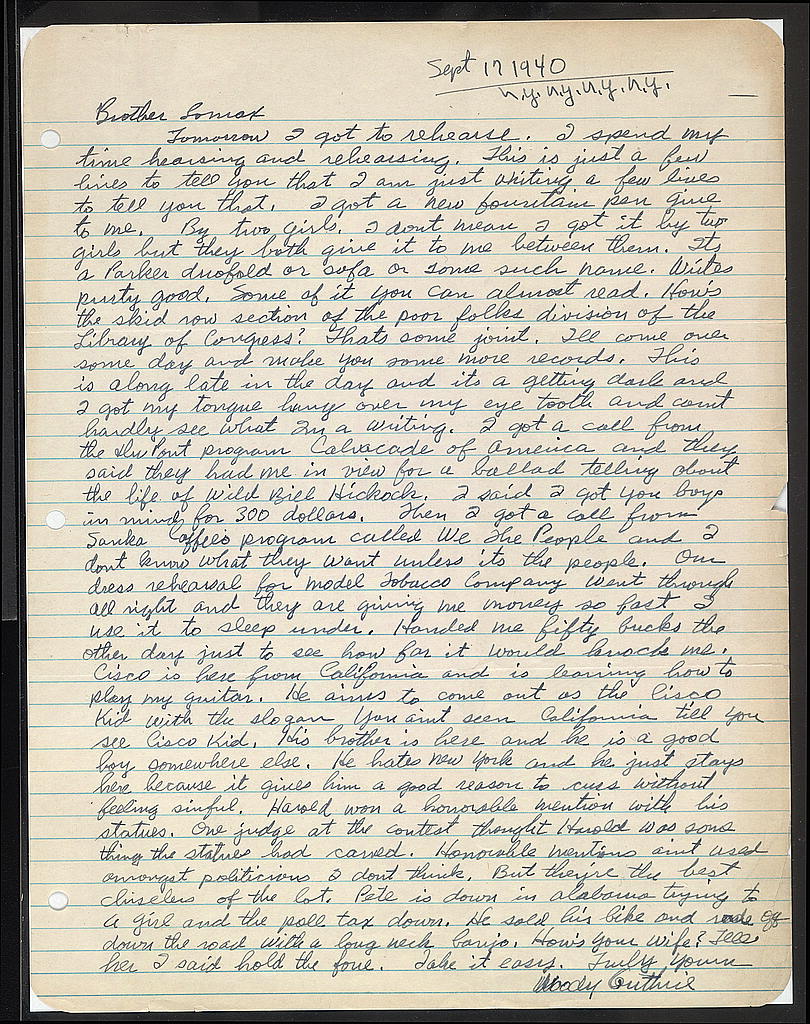 Sept 17 1940
n.y. n.y. n.y. n.y.
Brother Lomax
Tomorrow I got to rehearse. I spend my
time hearsing and rehearsing. This is just a few
lines to tell you that I am just writing a few lines
to tell you that. I got a new fountain pen give
to me. By two girls. I dont mean I got it by two
girls but they both give it to me between them. Its
a Parker duofold or sofa or some such name. Writes
purty good. Some of it you can almost read. How's
the skid row section of the poor folks division of the
Library of Congress? Thats some joint. Ill come over
some day and make you some more records. This
is along late in the day and its a getting dark and
I got my tongue hung over my eye tooth and cant
hardly see what Im a writing. I got a call from
the Du Pont program Calvacade of America and they
said they had me in view for a ballad telling about
the life of Wild Bill Hickock. I said I got you boys
in mind for 300 dollars. Then I got a call from
Sanka Coffees program called We The People and I
dont know what they want unless its the people. Our
dress rehearsal for Model Tobacco Company went through
all right and they are giving me money so fast I
use it to sleep under. Handed me fifty bucks the
other day just to see how far it would knock me.
Cisco is here from California and is learning how to
play my guitar. He aims to come out as the Cisco
Kid with the slogan You aint seen California till you
see Cisco Kid. His brother is here and he is a good
boy somewhere else. He hates New York and he just stays
here because it gives him a good reason to cuss without
feeling sinful. Harold won a honorable mention with his
statues. One judge at the contest thought Harold was some
thing the statues had carved. Honorable mentions aint used
amongst politicians I dont think. But theyre the best
chiselers of the lot. Pete is down in alabama trying to
a girl and the poll tax down. He sold his bike and rode off
down the road with a long neck banjo. How's your wife? Tell
her I said hold the fone. Take it easy. Truly Yourn
Woody Guthrie